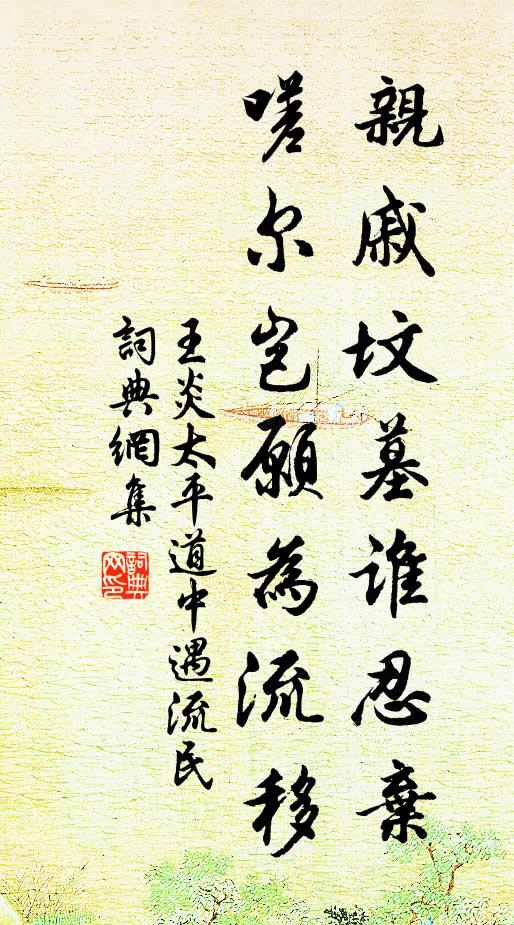 親戚墳墓誰忍棄
嗟尔岂願為流移
王炎太平道中遇流民
詞典網集
詞典网印